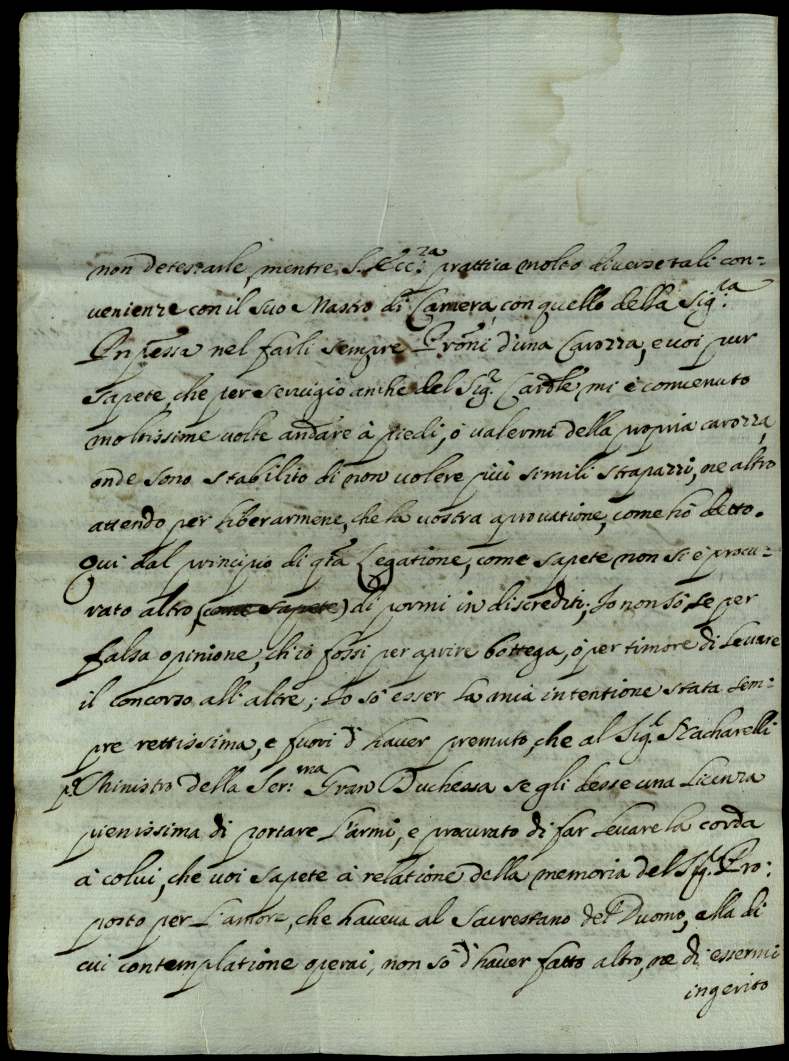 non detestarle, mentre S. Ecc.za prattica molto diverse tali con=
venienze con il suo Mastro di Camera, con quello della Sig.ra
nel farli sempre d'una Carozza, e voi pur
sapete, che per servigio anche del Sig.r Cardle mi è convenuto
moltissime volte andare à piedi, ò valermi della propria carozza,
onde sono stabilito di non volere più simili strapazzi, ne altro
attendo per liberarmene, che la vostra aprovatione, come hò detto.
Qui dal principio di qta Legatione, come sapete non si è procu=
rato altro, (come sapete) di pormi in discrediti; Io non sò, se per
falsa opinione, ch'io fossi per aprire bottega, ò per timore di levare
il concorso all'altre; Io sò esser la mia intentione stata sem=
pre rettissima, e fuori d'haver premuto, che al Sig.r Zacharelli
p.o Ministro della Ser.ma Gran Duchessa se gli desse una Licenza
pienissima di portare l'armi, e procurato di far levare la corda
à colui, che voi sapete à relatione della memoria del Sig.r Pro:
posto per l'amore, che haveva al Sacrestano del Duomo, alla di
cui contemplatione operai, non sò d'haver fatto altro, ne di essermi
ingerito